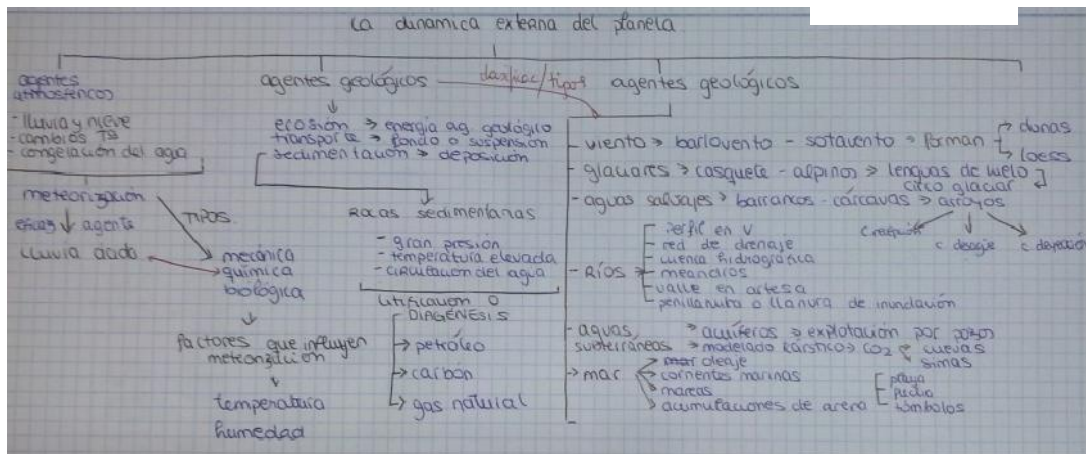 La dinamica externa del planeta
agentes
atmosféricos
- lluvia y nieve
- cambios Tª
- congelación del agua
meteorización
eficaz ↓ agente
lluvia ácida
TIPOS
mecánica
química
biológica
factores que influyen
meteorización
temperatura
humedad
agentes geológicos
erosión → energía ag. geológico
transporte → fondo o suspensión
sedimentación → deposición
Rocas sedimentarias
- gran presión
- temperatura elevada
- circulación del agua
Litificación o
DIAGÉNESIS
→ petróleo
→ carbón
→ gas natural
tipos
agentes geológicos
- viento → barlovento - sotavento → forman
dunas
loess
- glaciares → casquete - alpinos → lenguas de hielo
circo glaciar
- aguas salvajes → barrancos - cárcavas → arroyos
c recepción
c desagüe
c deyección
- RÍOS →
perfil en V
red de drenaje
cuenca hidrográfica
meandros
valle en artesa
penillanura o llanura de inundación
- aguas
subterráneas
→ acuíferos → explotación por pozos
→ modelado kárstico → CO2
cuevas
simas
→ mar
oleaje
corrientes marinas
mareas
acumulaciones de arena
playa
tómbolos